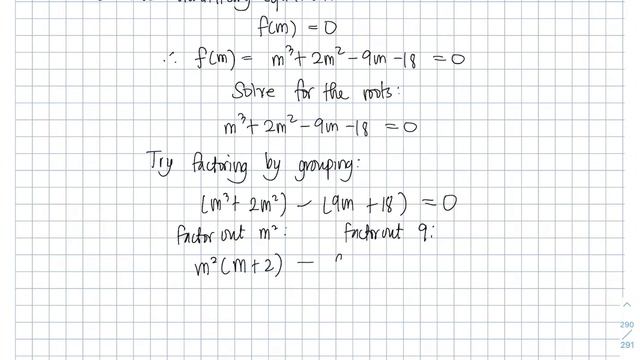 f(m) = 0
∴ f(m) = m³ + 2m² - 9m - 18 = 0
Solve for the roots:
m³ + 2m² - 9m - 18 = 0
Try factoring by grouping:
(m³ + 2m²) - (9m + 18) = 0
factor out m²: factor out 9:
m²(m+2) -
290
291